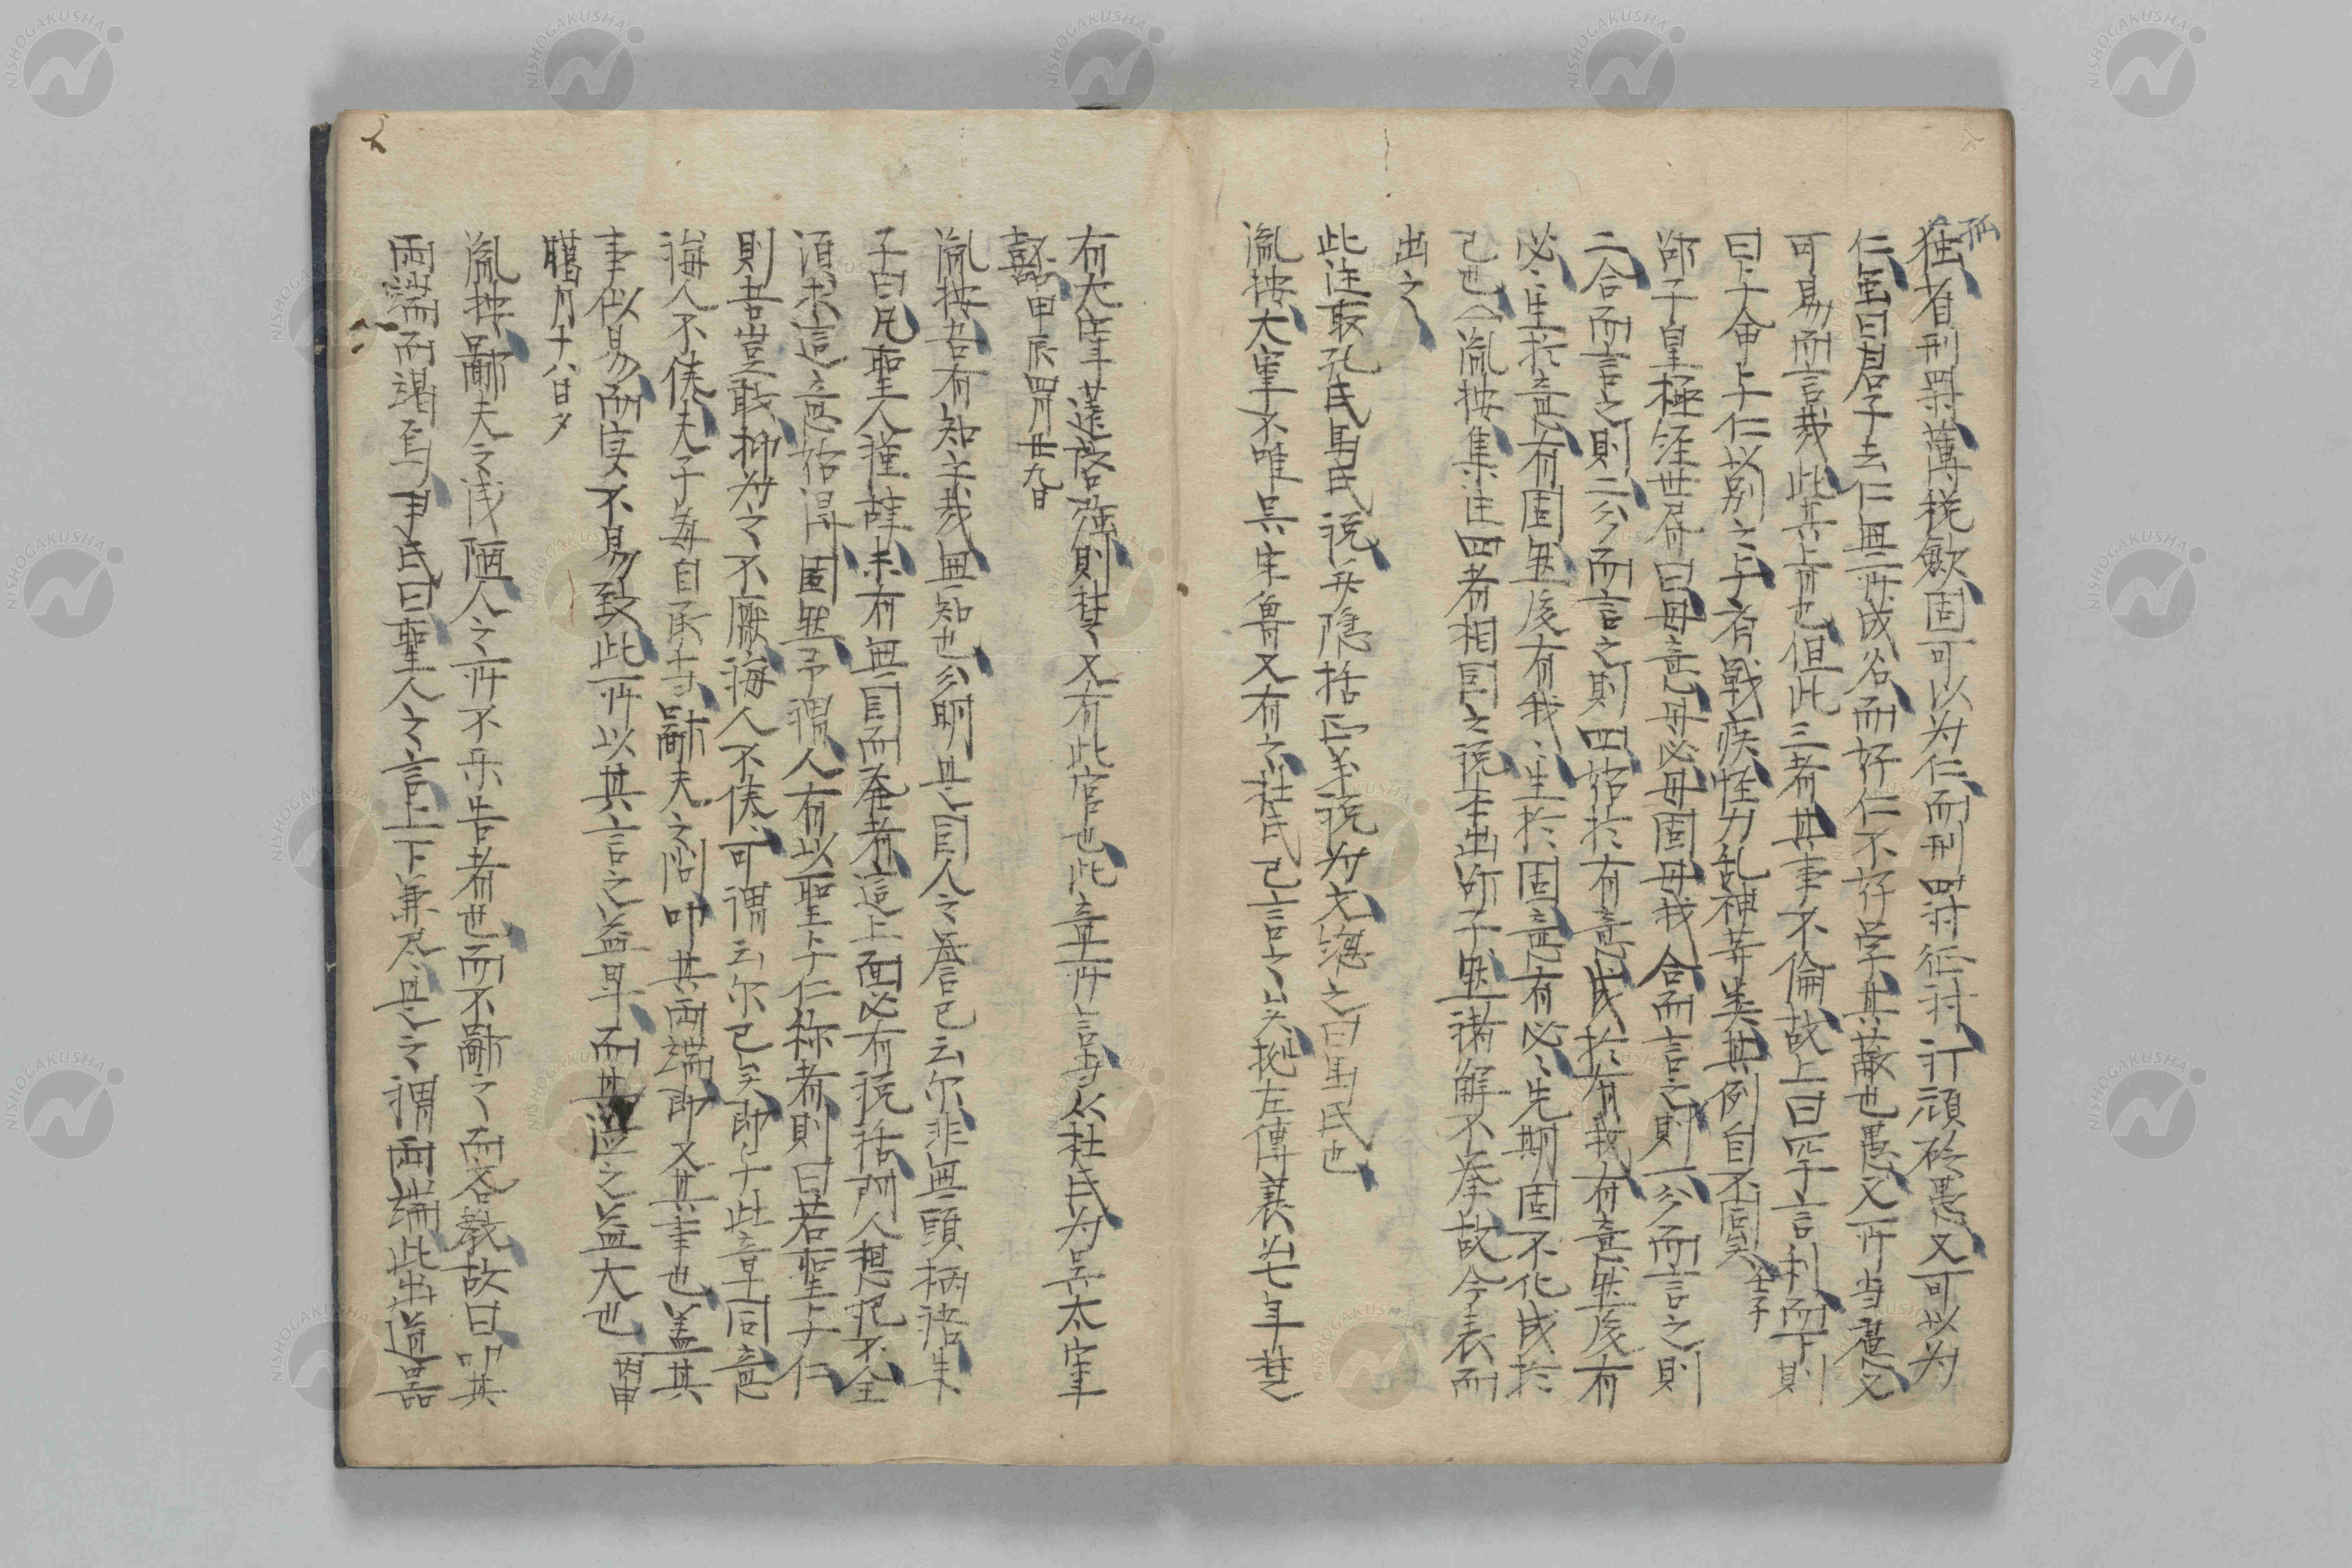 孤
独省刑罪薄税歛固可以为仁而刑四対征討行頑砭愚又可以为
仁玉曰君子去仁無所成名而好仁不好学其蔽也愚又所当雇又
可易而言哉此其上肯也但此三者其事不倫故上曰罕言利而下則
曰与命与仁以別之子有戦疾恠力乱神等类其例自不同矣 壬子
邵子皇極経世眉曰毋意毋必毋固毋我合而言之則一分而言之則
二合而言之則二分而言之則四始於有意成於有我有意然後有
必〻生於意有固然後有我〻生於固意有必〻先期固不化成於
己也 胤按集注四者相因之説本出邵子然諸解不登故今表而
出之
此注取孔氏馬氏説
胤按大宰不唯呉宋魯又有之杜氏已言之矣按左傳襄廿七年楚
有大宰薳啓彊則楚又有此官也此章所言者从杜氏为呉太宰
嚭 甲辰四月廿九日
胤按吾有知乎哉無知也分明是自人之誉已云尓非無頭柄話朱
子曰凡聖人謹辞未有無自而発者這上面必有説話門人想記不全
須求這意始得固然予謂人有以聖与仁称者則曰若聖与仁
則吾豈敢抑为之不厭誨人不倦〻可謂云尓已矣即与此章同意
誨人不倦夫子毎自承当鄙夫之問叩其両端即又其事也盖其
事似易而実不易致此所以其言之益卑而其道之益大也 丙申
臈月十八日夕
胤按鄙夫之浅陋人之所不楽告者也而不鄙之而吝教故曰叩其
両端而竭焉尹氏曰聖人之言上下兼尽是之謂両端此出道器